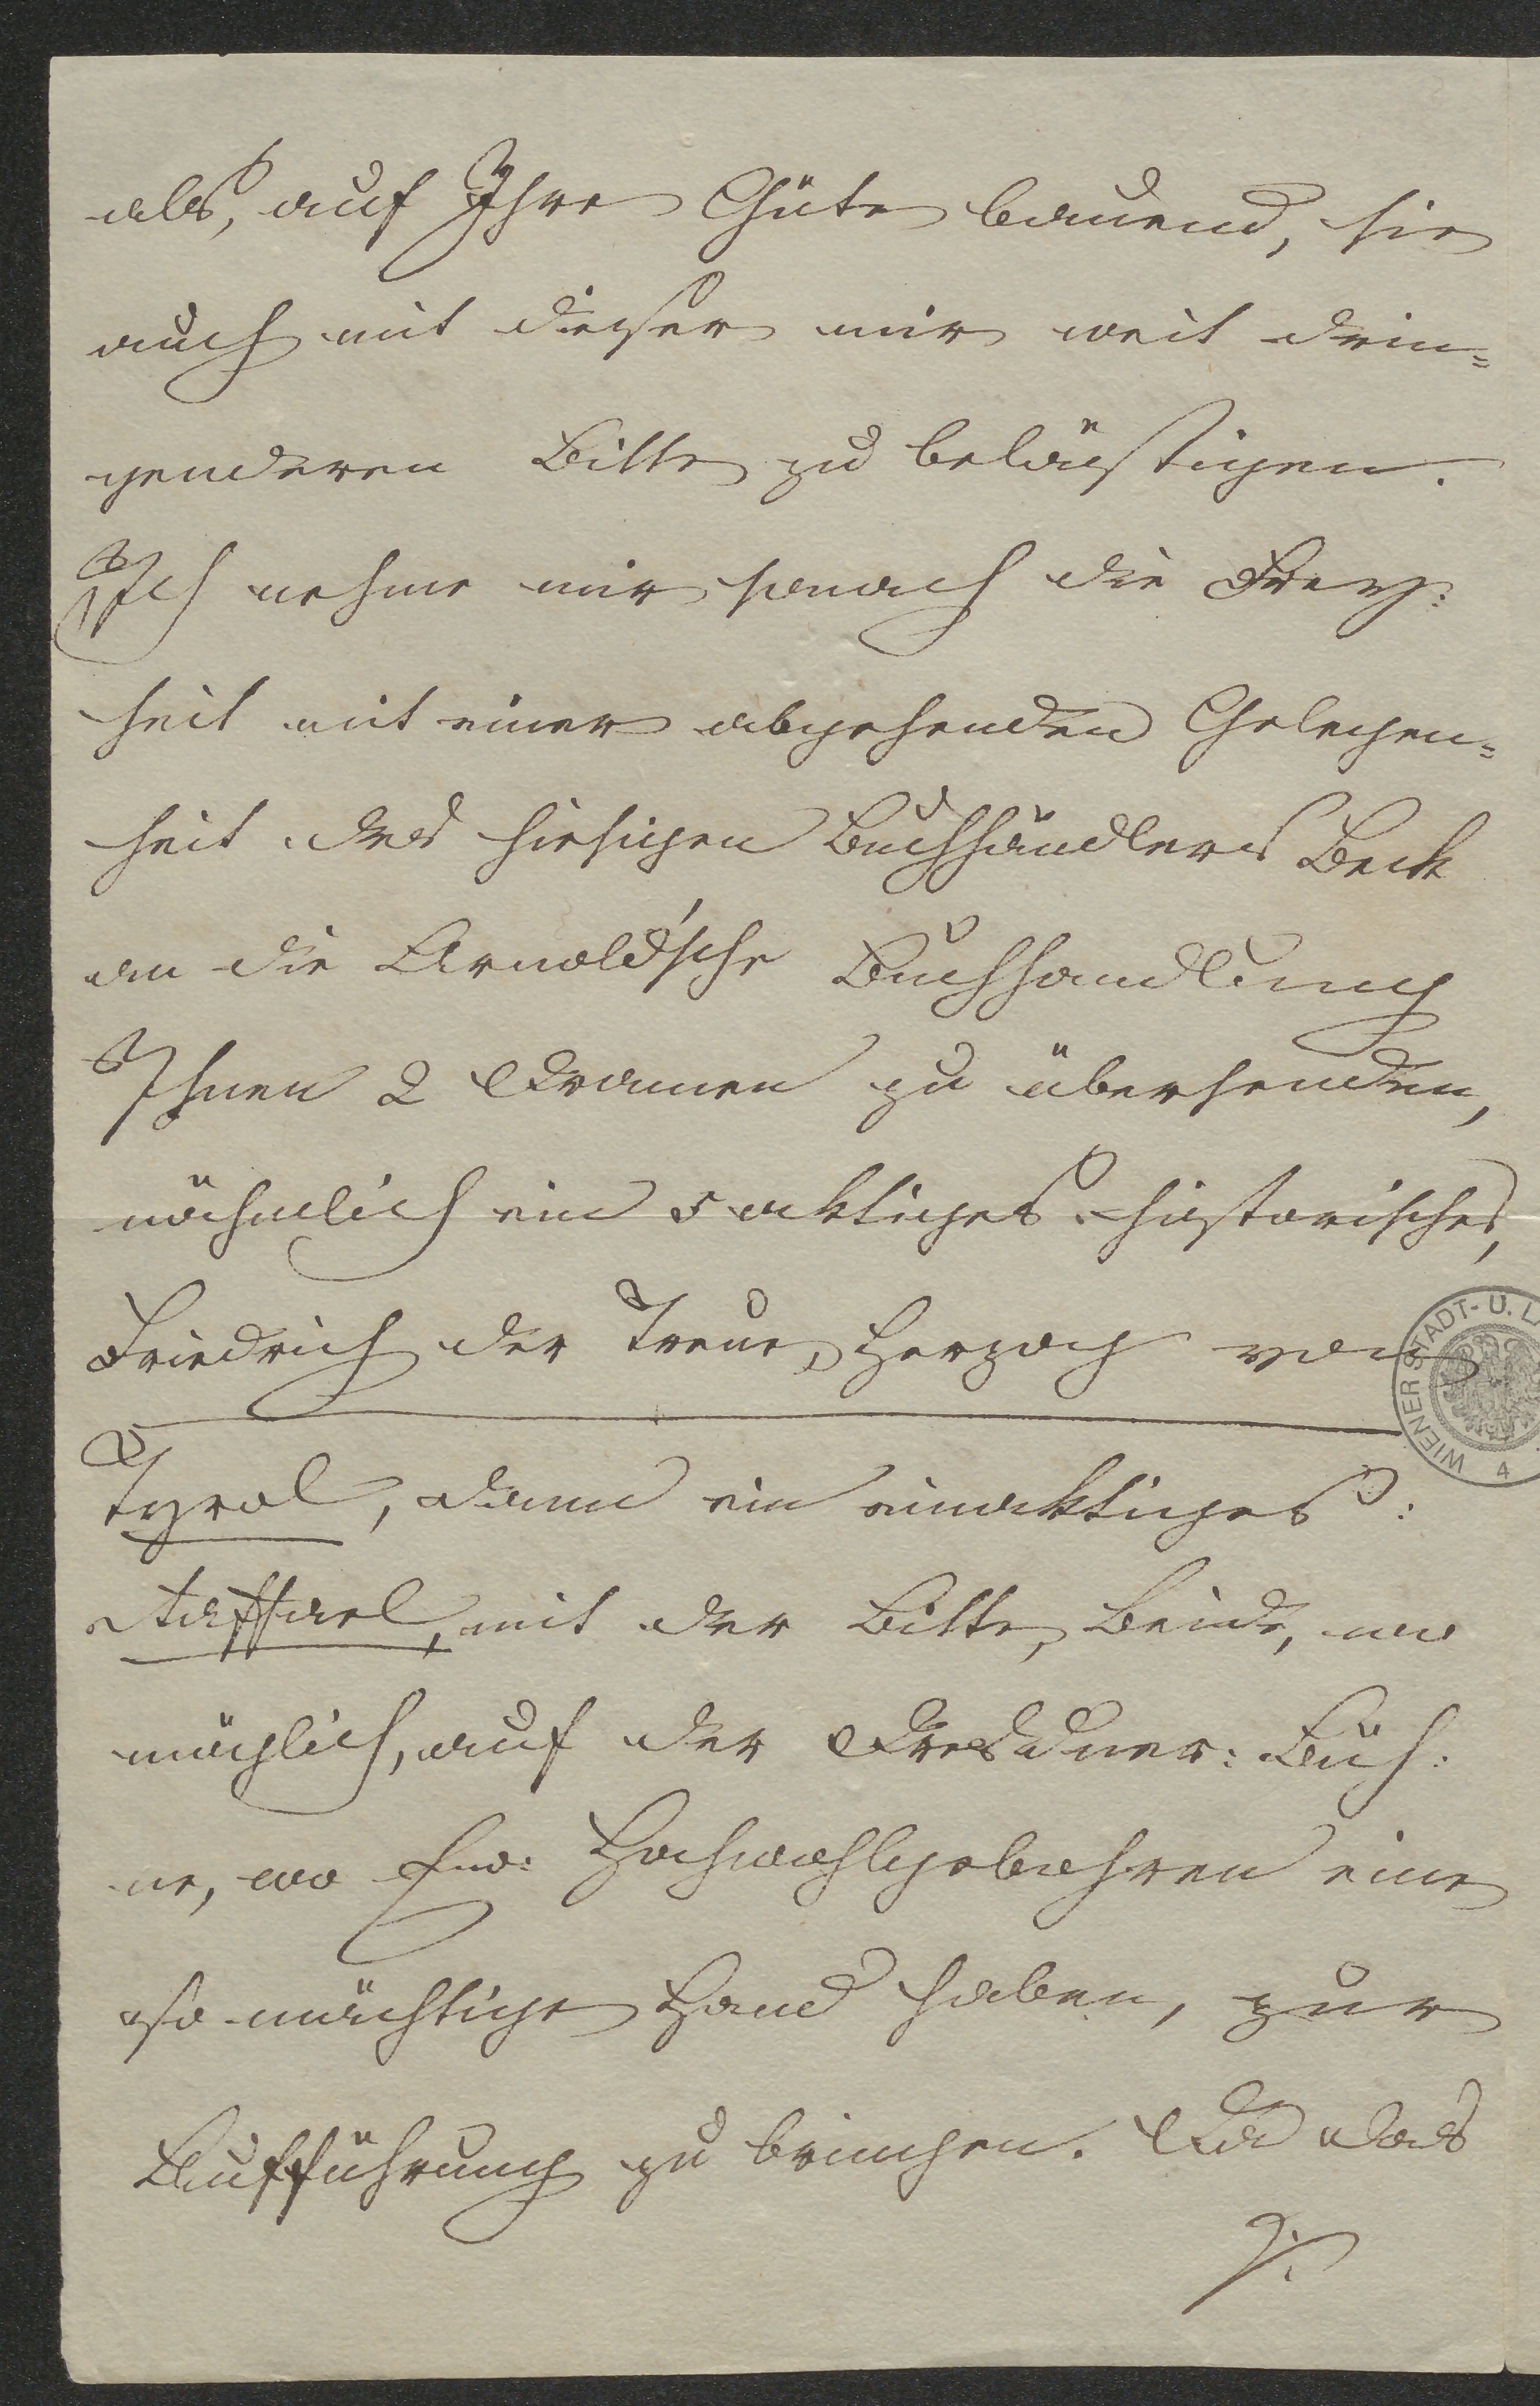 als, auf Ihre Güte bauend, sie
auch mit dieser mir weit drin=
genderen Bitte zu belästigen.
Ich nehme mir sonach die Frey:
heit mit einer abgehenden Gelegen=
heit des hiesigen Buchhändlers Beck
an die Arnold'sche Buchhandlung
Ihnen 2 Dramen zu übersenden,
nähmlich ein 5 aktiges historisches,
Friedrich der Treue, Herzog von
Tyrol, dann ein einaktiges:
mit der Bitte, beide, wo
möglich, auf der Dresdner: Büh:
ne, wo Euer: Hochwohlgebohren eine
so mächtige Hand haben, zur
Aufführung zu bringen. Da das
WIENER STADT- U. L
4